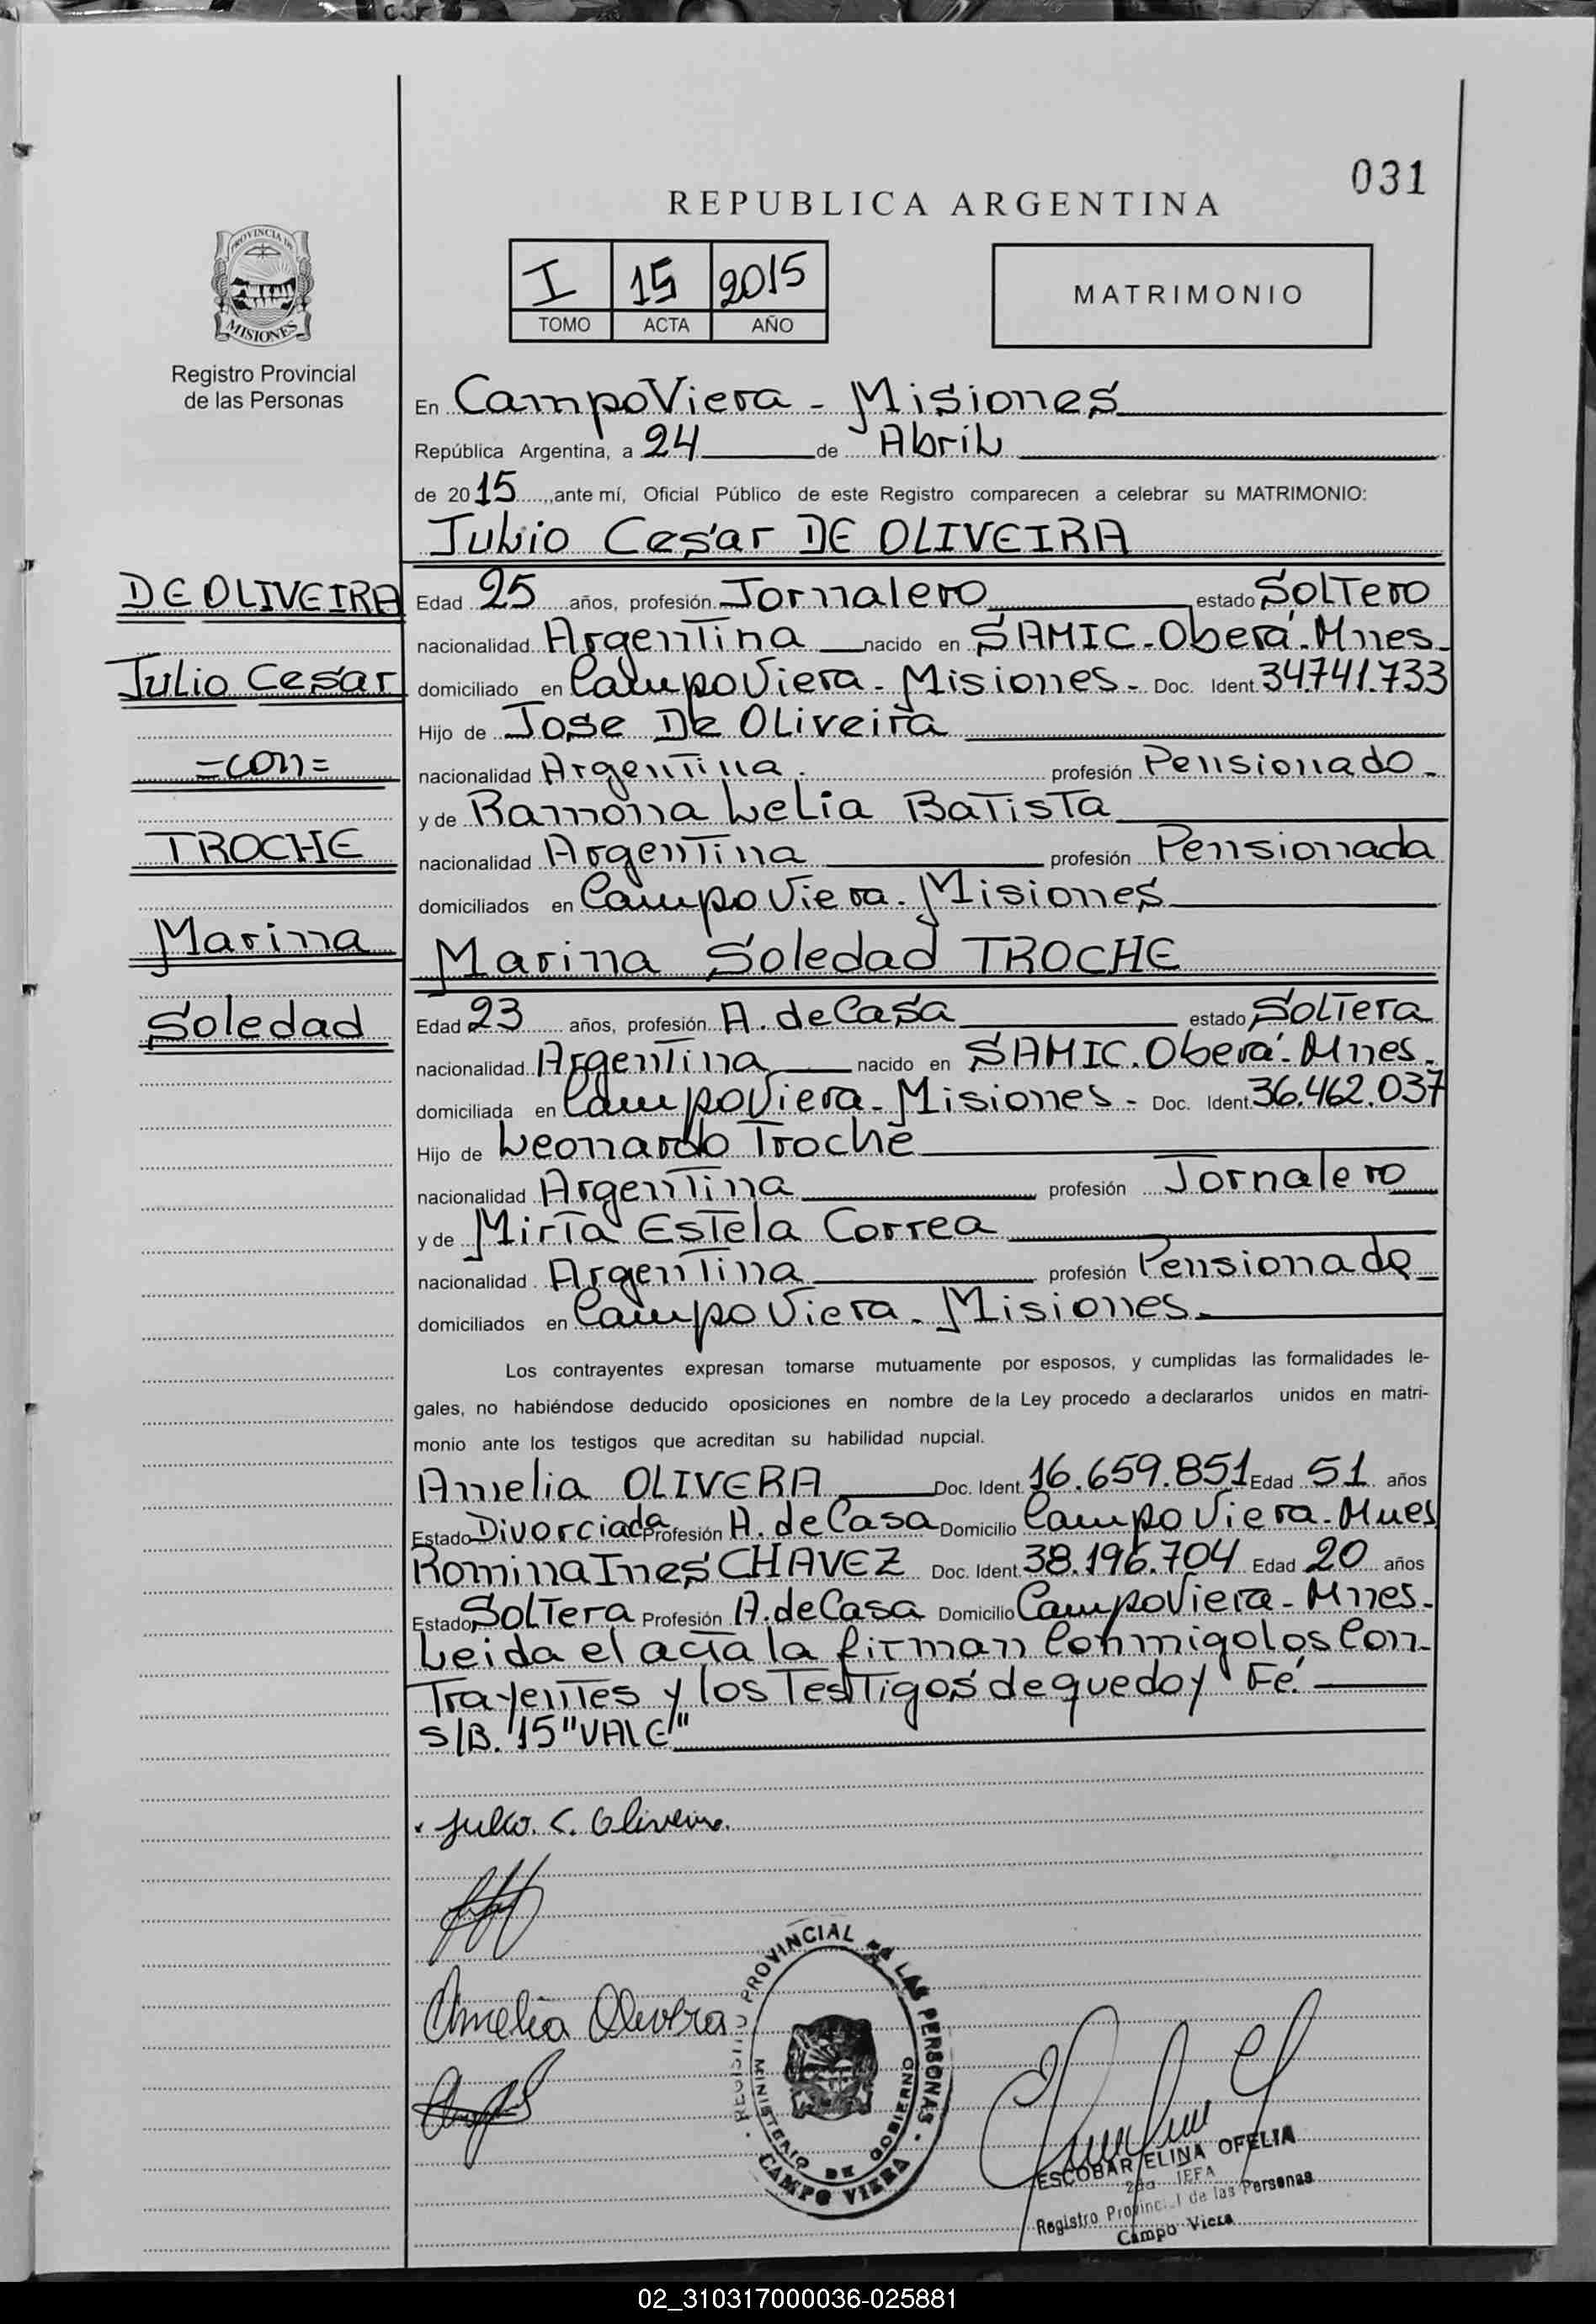 031
REPUBLICA ARGENTINA
PROVINCIA DE
MISIONES
Registro Provincial
de las Personas
I 15 2015
TOMO ACTA AÑO
MATRIMONIO
En Campo Viera - Misiones
República Argentina, a 24 de Abril
de 2015, ante mí, Oficial Público de este Registro comparecen a celebrar su MATRIMONIO:
Julio Cesar DE OLIVEIRA
DE OLIVEIRA
Julio Cesar
=con=
TROCHE
Marina
Soledad
Edad 25 años, profesión Jornalero estado Soltero
nacionalidad Argentina nacido en SAMIC-Oberá-Mnes-
domiciliado en Campo Viera - Misiones - Doc. Ident. 34.741.733
Hijo de Jose De Oliveira
nacionalidad Argentina profesión Pensionado-
y de Ramona Lelia Batista
nacionalidad Argentina profesión Pensionada
domiciliados en Campo Viera - Misiones
Marina Soledad TROCHE
Edad 23 años, profesión A. de Casa estado Soltera
nacionalidad Argentina nacido en SAMIC. Oberá-Mnes-
domiciliada en Campo Viera - Misiones - Doc. Ident. 36.462.037
Hijo de Leonardo Troche
nacionalidad Argentina profesión Jornalero
y de Mirta Estela Correa
nacionalidad Argentina profesión Pensionada
domiciliados en Campo Viera - Misiones
Los contrayentes expresan tomarse mutuamente por esposos, y cumplidas las formalidades le-
gales, no habiéndose deducido oposiciones en nombre de la Ley procedo a declararlos unidos en matri-
monio ante los testigos que acreditan su habilidad nupcial.
Amelia OLIVERA Doc. Ident. 16.659.851 Edad 51 años
Estado Divorciada Profesión A. de Casa Domicilio Campo Viera - Mnes
Romina Ines CHAVEZ Doc. Ident. 38.196.704 Edad 20 años
Estado Soltera Profesión A. de Casa Domicilio Campo Viera - Mnes-
Leida el acta la firman conmigo los Con-
trayentes y los Testigos de que doy Fé.
S/B. 15 "VALE"
Julio. C. Oliveira.
Amelia Olivera
REGISTRO PROVINCIAL DE LAS PERSONAS
MINISTERIO DE GOBIERNO
CAMPO VIERA
ESCOBAR ELINA OFELIA
2da JEFA
Registro Provincial de las Personas
Campo Viera
02_310317000036-025881